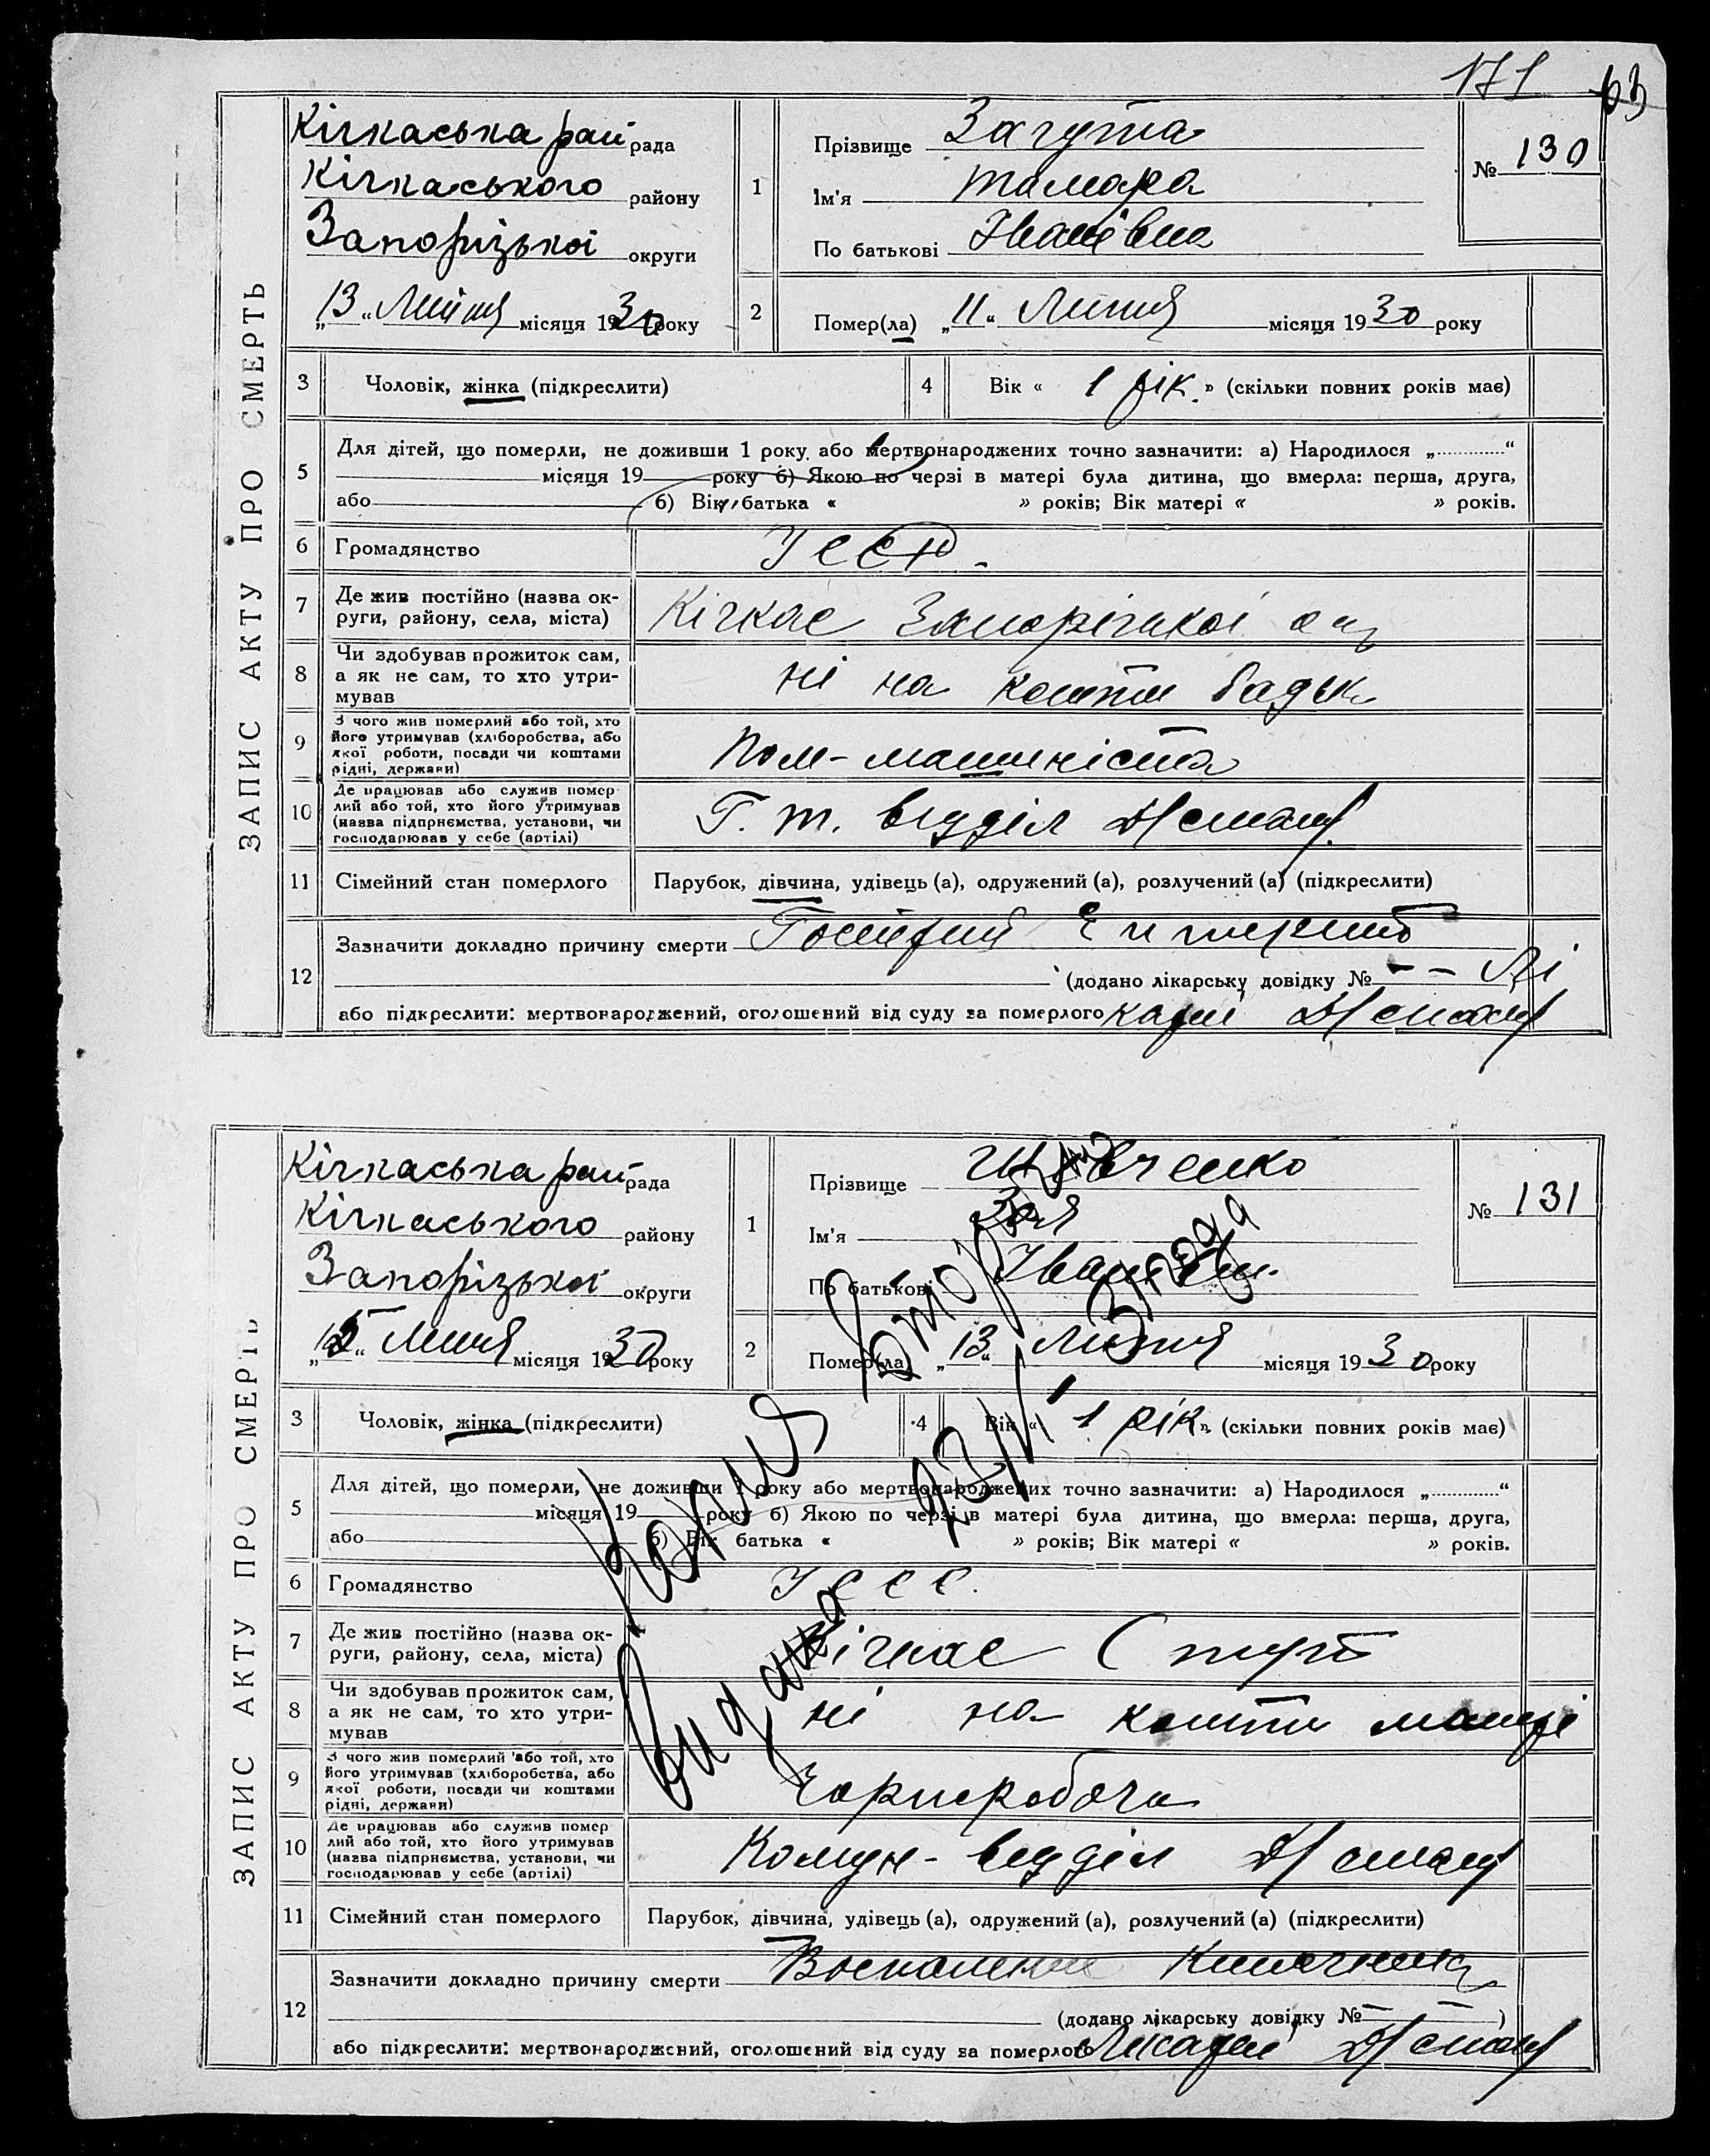 171 63
ЗАПИС АКТУ ПРО СМЕРТЬ
Кічкаська рай рада
Кічкаського району
Запорізької округи
„13“ Липня місяця 1930 року
1
Прізвище Загута
Ім'я Тамара
По батькові Іванівна
№ 130
2
Помер(ла) „11“ Липня місяця 1930 року
3 Чоловік, жінка (підкреслити)
4 Вік « 1 рік » (скільки повних років має)
5 Для дітей, що померли, не доживши 1 року або мертвонароджених точно зазначити: а) Народилося „ “
місяця 19 року б) Якою по черзі в матері була дитина, що вмерла: перша, друга,
або б) Вік батька « » років; Вік матері « » років.
6 Громадянство УССР.
7 Де жив постійно (назва ок-
руги, району, села, міста) Кічкас Запорізької ок
8 Чи здобував прожиток сам,
а як не сам, то хто утри-
мував ні на кошти батьк
9 З чого жив померлий або той, хто
його утримував (хліборобства, або
якої роботи, посади чи коштами
рідні, держави) Пом-машиніста
10 Де працював або служив помер
лий або той, хто його утримував
(назва підприємства, установи, чи
господарював у себе (артілі) Г. т. відділ
11 Сімейний стан померлого Парубок, дівчина, удівець (а), одружений (а), розлучений (а) (підкреслити)
12 Зазначити докладно причину смерти Гострий Ентерит
(додано лікарську довідку № – – Лі
або підкреслити: мертвонароджений, оголошений від суду за померлого карні
ЗАПИС АКТУ ПРО СМЕРТЬ
Кічкаська рай рада
Кічкаського району
Запорізької округи
„15“ Липня місяця 1930 року
1
Прізвище Шевченко
Ім'я Зоя
По батькові Іванівна
№ 131
2
Помер(ла) „13“ Липня місяця 1930 року
3 Чоловік, жінка (підкреслити)
4 Вік « 1 рік » (скільки повних років має)
5 Для дітей, що померли, не доживши 1 року або мертвонароджених точно зазначити: а) Народилося „ “
місяця 19 року б) Якою по черзі в матері була дитина, що вмерла: перша, друга,
або б) Вік батька « » років; Вік матері « » років.
6 Громадянство УССР.
7 Де жив постійно (назва ок-
руги, району, села, міста) Кічкас
8 Чи здобував прожиток сам,
а як не сам, то хто утри-
мував ні на кошти матері
9 З чого жив померлий або той, хто
його утримував (хліборобства, або
якої роботи, посади чи коштами
рідні, держави) Чорноробоча
10 Де працював або служив помер
лий або той, хто його утримував
(назва підприємства, установи, чи
господарював у себе (артілі) Комун-відділ
11 Сімейний стан померлого Парубок, дівчина, удівець (а), одружений (а), розлучений (а) (підкреслити)
12 Зазначити докладно причину смерти Воспаление Кишечника
(додано лікарську довідку № – – )
або підкреслити: мертвонароджений, оголошений від суду за померлого Лікарні
Копия
Видана